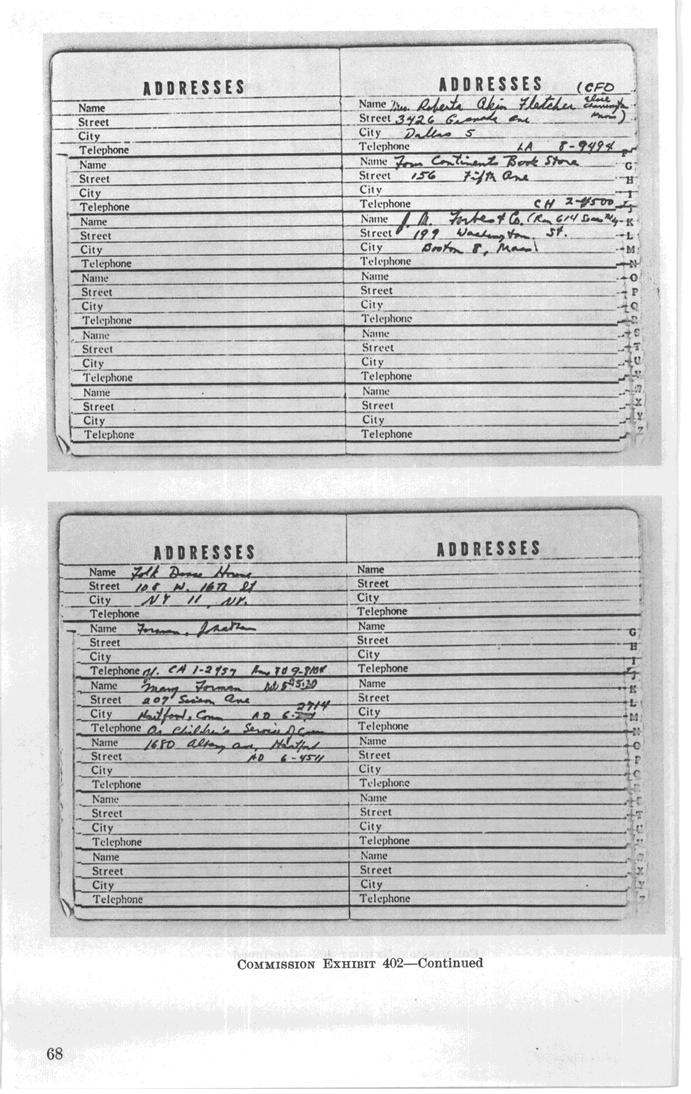 ADDRESSES
Name
Street
City
Telephone
Name
Street
City
Telephone
Name
Street
City
Telephone
Name
Street
City
Telephone
Name
Street
City
Telephone
Name
Street
City
Telephone
ADDRESSES (CFO
Name Mrs. Roberta Akin Fletcher
Street 3426 Ave
City Dallas 5
Telephone LA 8-9494
Name Four Continents Book Store
Street 156 Fifth Ave
City
Telephone CH 2-4500
Name J. A. Forbes & Co. (Rm 614
Street 199 Washington St.
City Boston 8, Mass
Telephone
Name
Street
City
Telephone
Name
Street
City
Telephone
Name
Street
City
Telephone
F
G
H
I
J
K
L
M
N
O
P
Q
S
T
U
X
Y
Z
ADDRESSES
Name Folk Dance House
Street 108 W. 16th St
City NY 11, NY.
Telephone
Name Forman, Jonathan
Street
City
Telephone CH 1-2957
Name Mary Forman
Street 207 Ave
2714
City Hartford, Conn AD 6-
Telephone Children's Service
Name 1680 Albany Ave, Hartford
Street AD 6-4511
City
Telephone
Name
Street
City
Telephone
Name
Street
City
Telephone
ADDRESSES
Name
Street
City
Telephone
Name
Street
City
Telephone
Name
Street
City
Telephone
Name
Street
City
Telephone
Name
Street
City
Telephone
Name
Street
City
Telephone
G
H
I
J
K
L
M
N
O
P
COMMISSION EXHIBIT 402—Continued
68